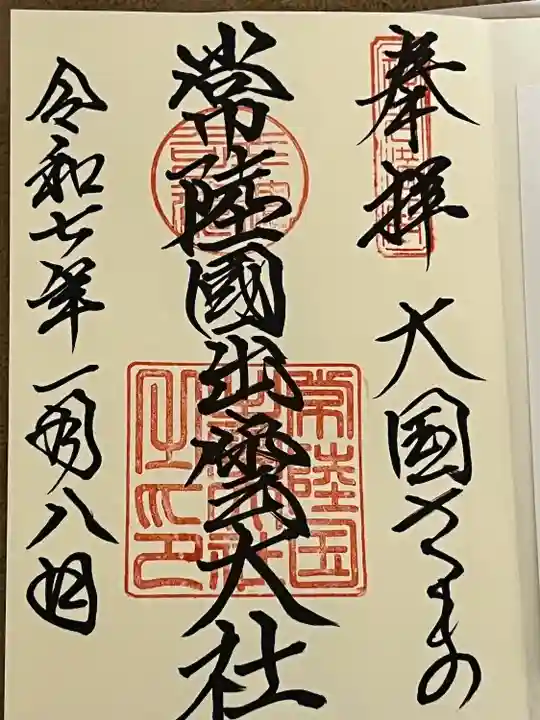 奉拝 大国さまの
常陸國出雲大社
常陸国出雲大社之印
令和七年一月八日